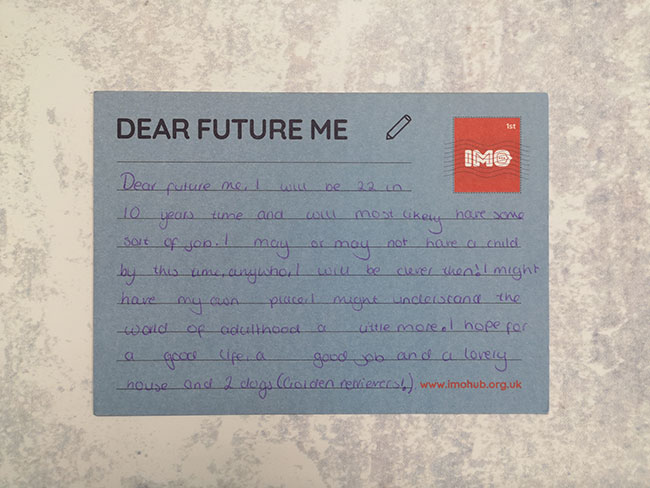 DEAR FUTURE ME
1st
IMO
Dear future me, I will be 22 in
10 years time and will most likely have some
sort of job. I may or may not have a child
by this time, anywho, I will be clever then! I might
have my own place. I might understand the
world of adulthood a little more. I hope for
a good life, a good job and a lovely
house and 2 dogs (Golden retrievers!)
www.imohub.org.uk